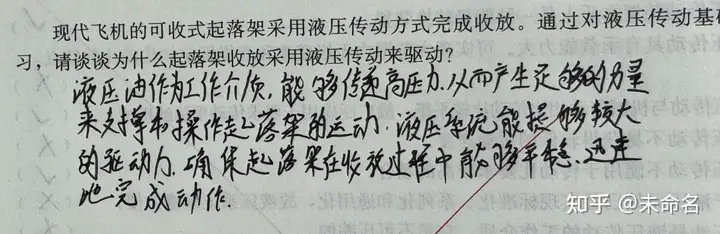 现代飞机的可收式起落架采用液压传动方式完成收放。通过对液压传动基
习，请谈谈为什么起落架收放采用液压传动来驱动？
液压油作为工作介质，能够传递高压力.从而产生足够的力量
来支撑和操作起落架的运动.液压系统能提够较大
的驱动力.确保起落架在收放过程中能够平稳.迅速
地完成动作.
知乎 @未命名